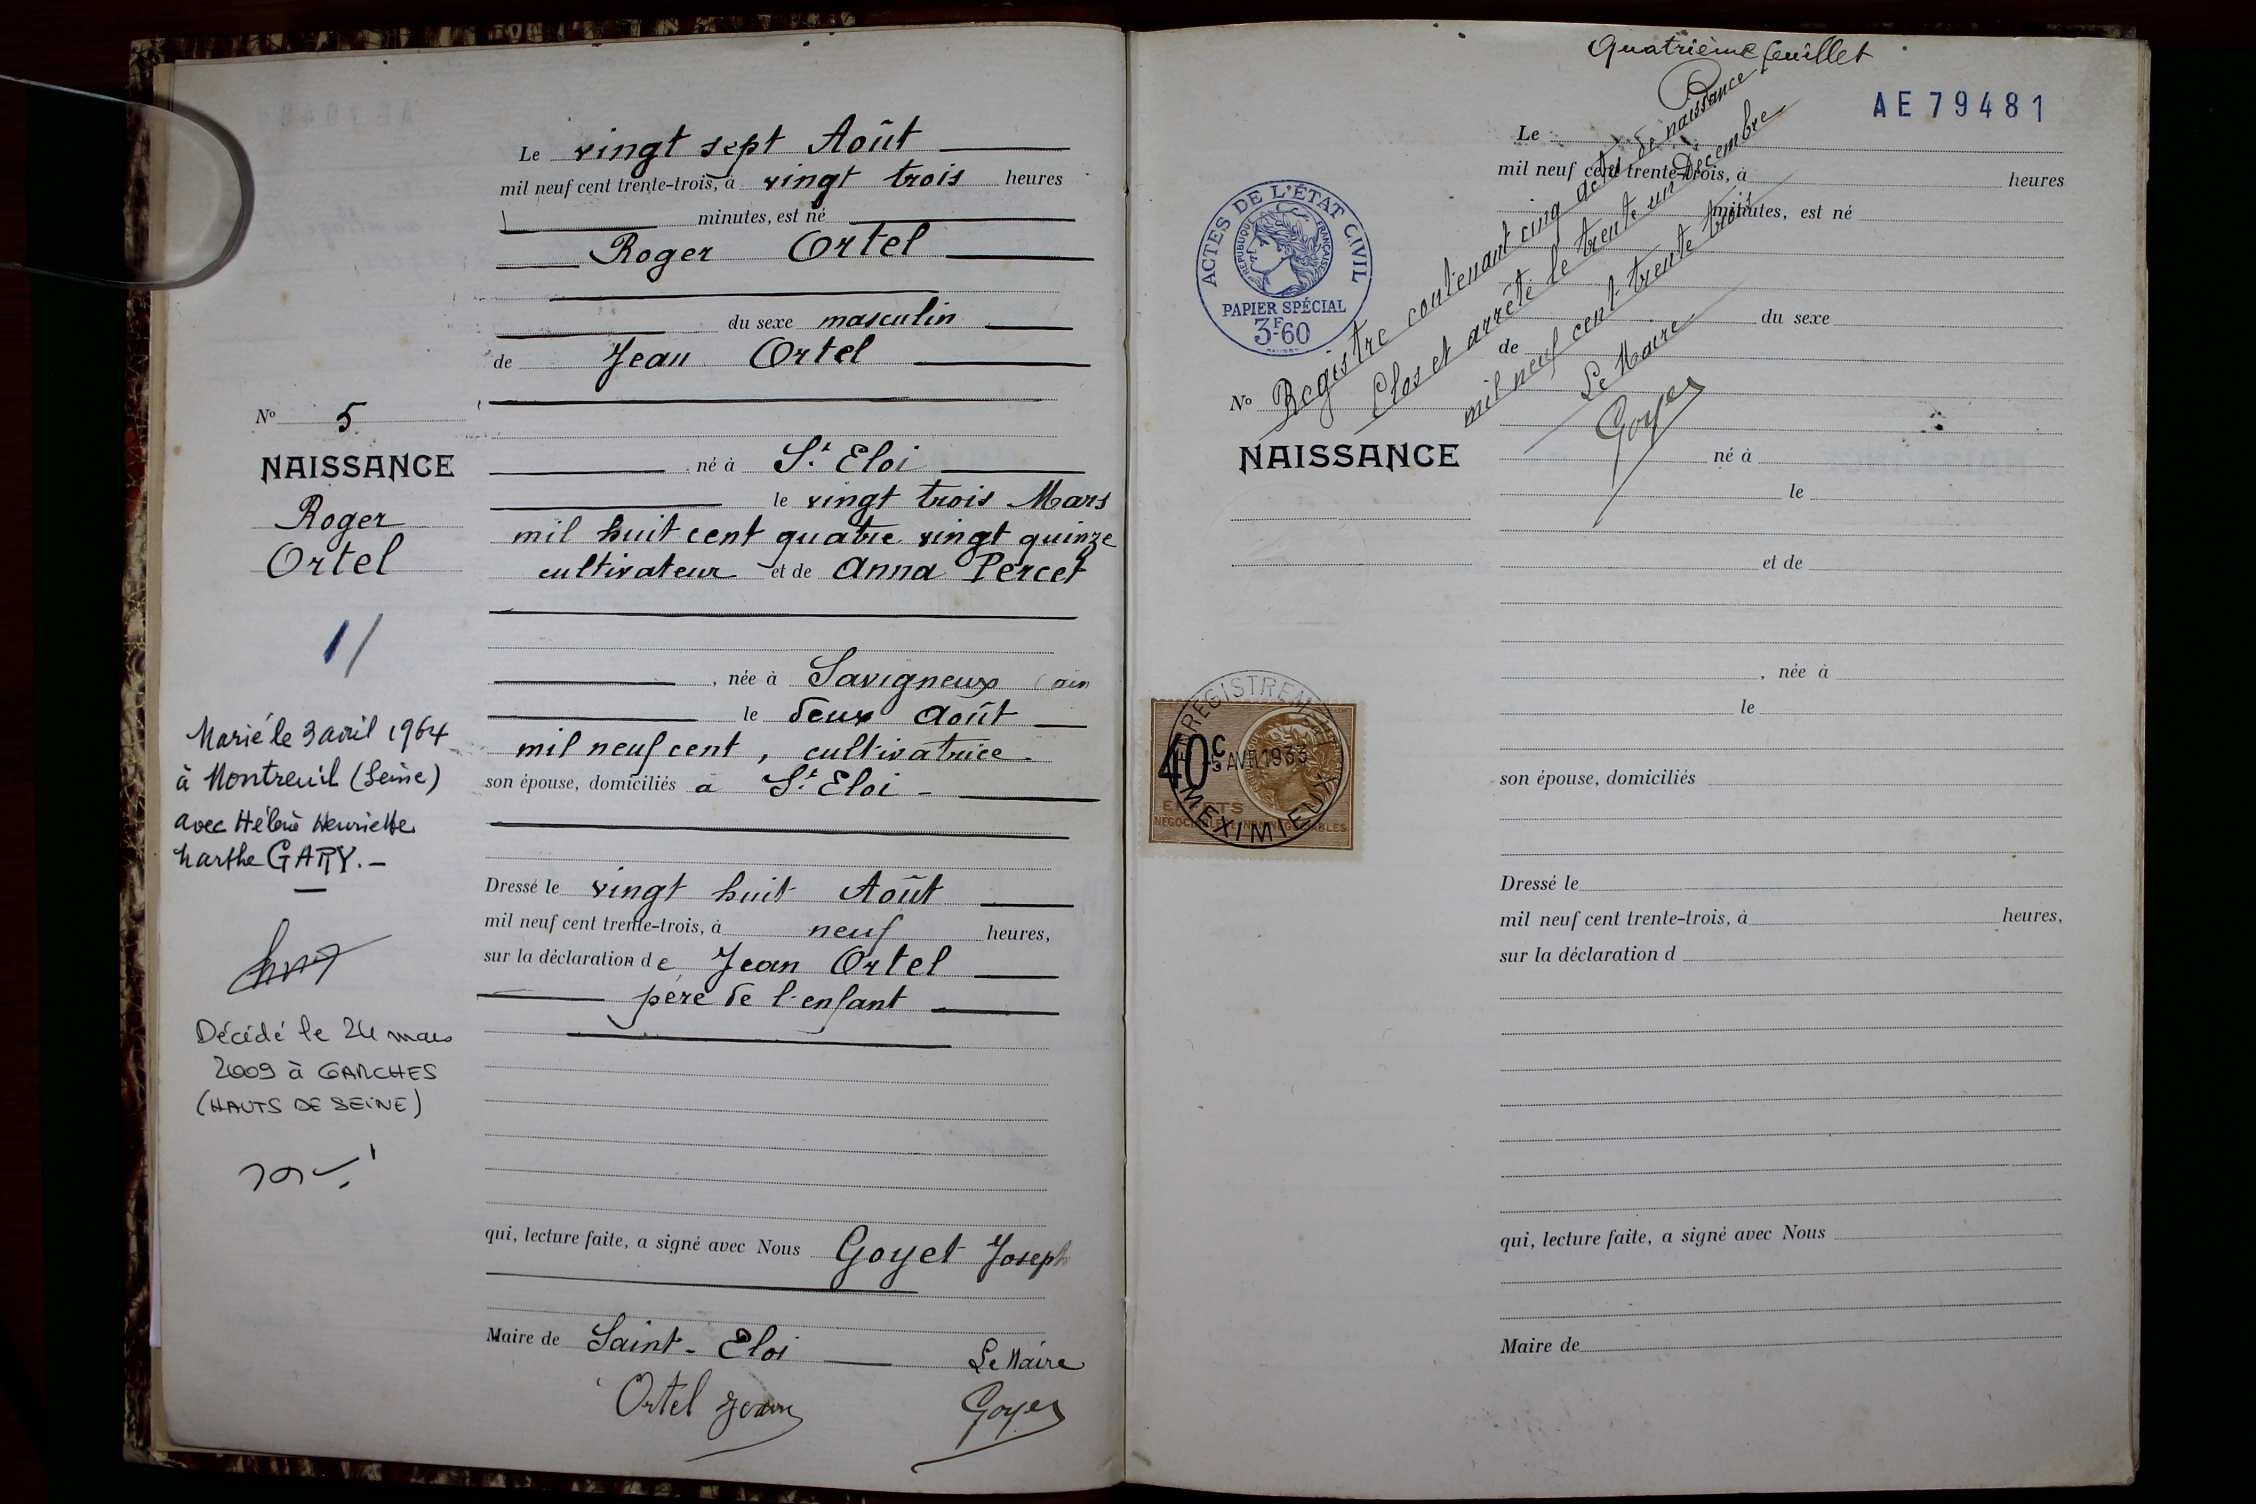 Le vingt sept Août
mil neuf cent trente-trois, à vingt trois heures
minutes, est né
Roger Ortel
du sexe masculin
de Jean Ortel
né à St Eloi
le vingt trois Mars
mil huit cent quatre vingt quinze
cultivateur et de Anna Percet
, née à Savigneux (ain
le deux Août
mil neuf cent, cultivatrice
son épouse, domiciliés à St Eloi -
Dressé le vingt huit Août
mil neuf cent trente-trois, à neuf heures,
sur la déclaration de Jean Ortel
père de l'enfant
qui, lecture faite, a signé avec Nous Goyet Joseph
Maire de Saint-Eloi
Le Maire
Ortel Jean
Goyet
No 5
NAISSANCE
Roger
Ortel
Marié le 3 avril 1964
à Montreuil (Seine)
avec Hélène Henriette
Marthe GARY.-
Décédé le 24 mars
2009 à GARCHES
(HAUTS DE SEINE)
Quatrième feuillet
AE 79481
ACTES DE L'ÉTAT CIVIL
RÉPUBLIQUE FRANÇAISE
PAPIER SPÉCIAL
3F60
Registre contenant cinq actes de naissance
Clos et arrêté le trente un Décembre
mil neuf cent trente trois
Le Maire
Goyet
No
NAISSANCE
ENREGISTREMENT
40c
5 AVR 1933
EFFETS
MEXIMIEUX
Le
mil neuf cent trente-trois, à heures
minutes, est né
du sexe
de
né à
le
et de
, née à
le
son épouse, domiciliés
Dressé le
mil neuf cent trente-trois, à heures,
sur la déclaration d
qui, lecture faite, a signé avec Nous
Maire de